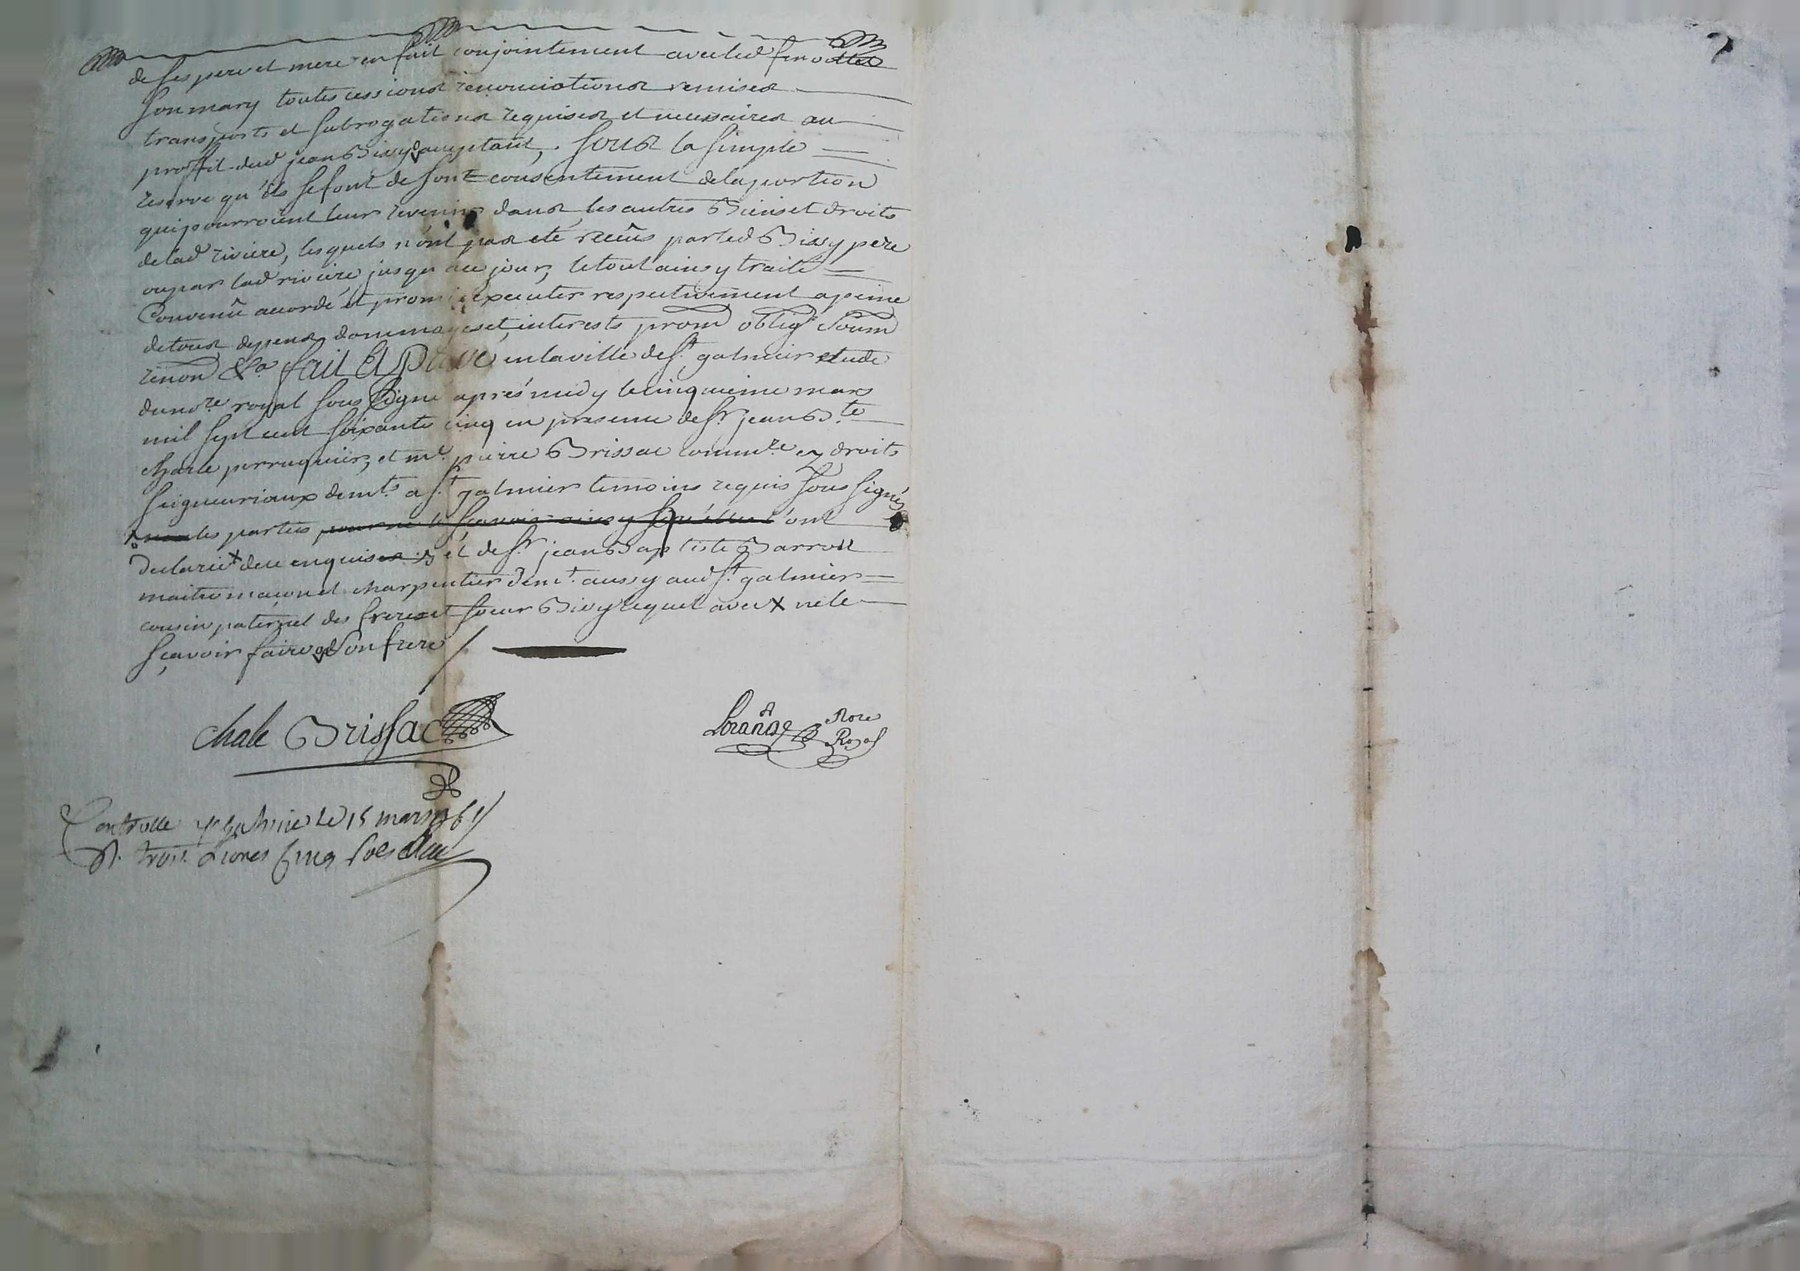 de ses pere et mere en fait conjointement avec led
son mary toutes cessions renonciations remises
transports et subrogations requises et necessaires au
proffit dud jean Bissy acceptant, sous la simple
reserve qu'ils se font de sont consentement de la portion
qui pourroient leur revenir dans les autres Biens et droits
de lad riviere, lesquels n'ont pas eté recûs par led Bissy pere
ou par lad riviere jusqu'a ce jour, le tout ainsy traité
Convenû accordé et promis executer respectivement a peine
de tous depens dommages et interests prom oblig soum
renon &a fait Et Passé en la ville de st galmier etude
du nore royal sous signé aprés midy le cinquieme mars
mil sept cent soixante cinq en presence de sr jean Bte
Chale perruquier, et me pierre Brissac commre en droits
seigneuriaux demts a st galmier temoins requis sous signés
les parties ont
declaré de ce enquises et de sr jean Baptiste Barrou
maitre maçon et charpentier demt aussy aud st galmier
cousin paternel des freres et soeur Bissy lequel avec x ne le
sçavoir faire son frere
Chale Brissac
Nore
Royal
Controllé a st galmier le 15 mars 1765
R. trois Livres cinq sols